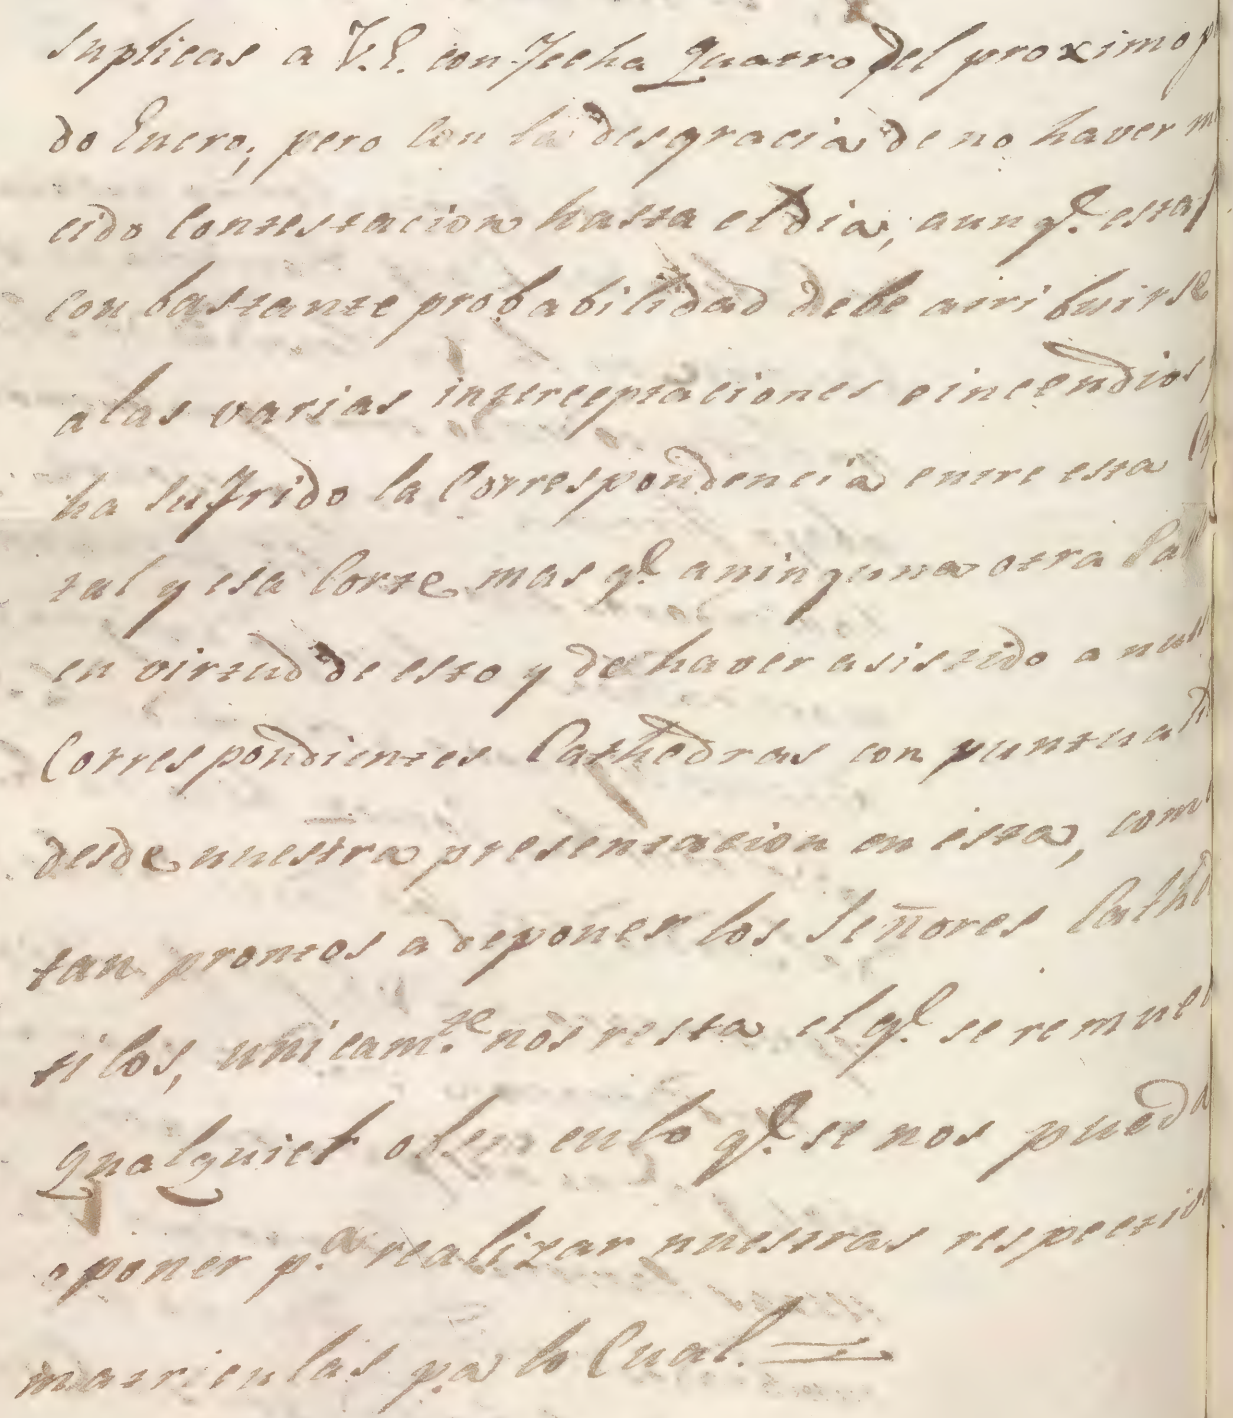 Suplicas a V.E. con fecha Quatro del proximo p
do Enero, pero con la desgracia de no haver m
cido Contestacion hasta el dia, aunq.e esta
con bastante probabilidad debe atribuirse
alas varias interceptaciones e incendios
ha sufrido la Correspondencia entre esta Cap
tal y esa Corte mas q.e aninguna otra
en virtud de esto y de haver asistido a nues
Correspondientes Cathedras con puntual
desde nuestra presentacion en esta, com
tan prontos a deponer los Señores Cathed
ticos, unicam.te nos resta el q.e se remuev
qualquier en lo q.e se nos pueda
oponer p.a realizar nuestras respectiv
matriculas p.a lo Cual.